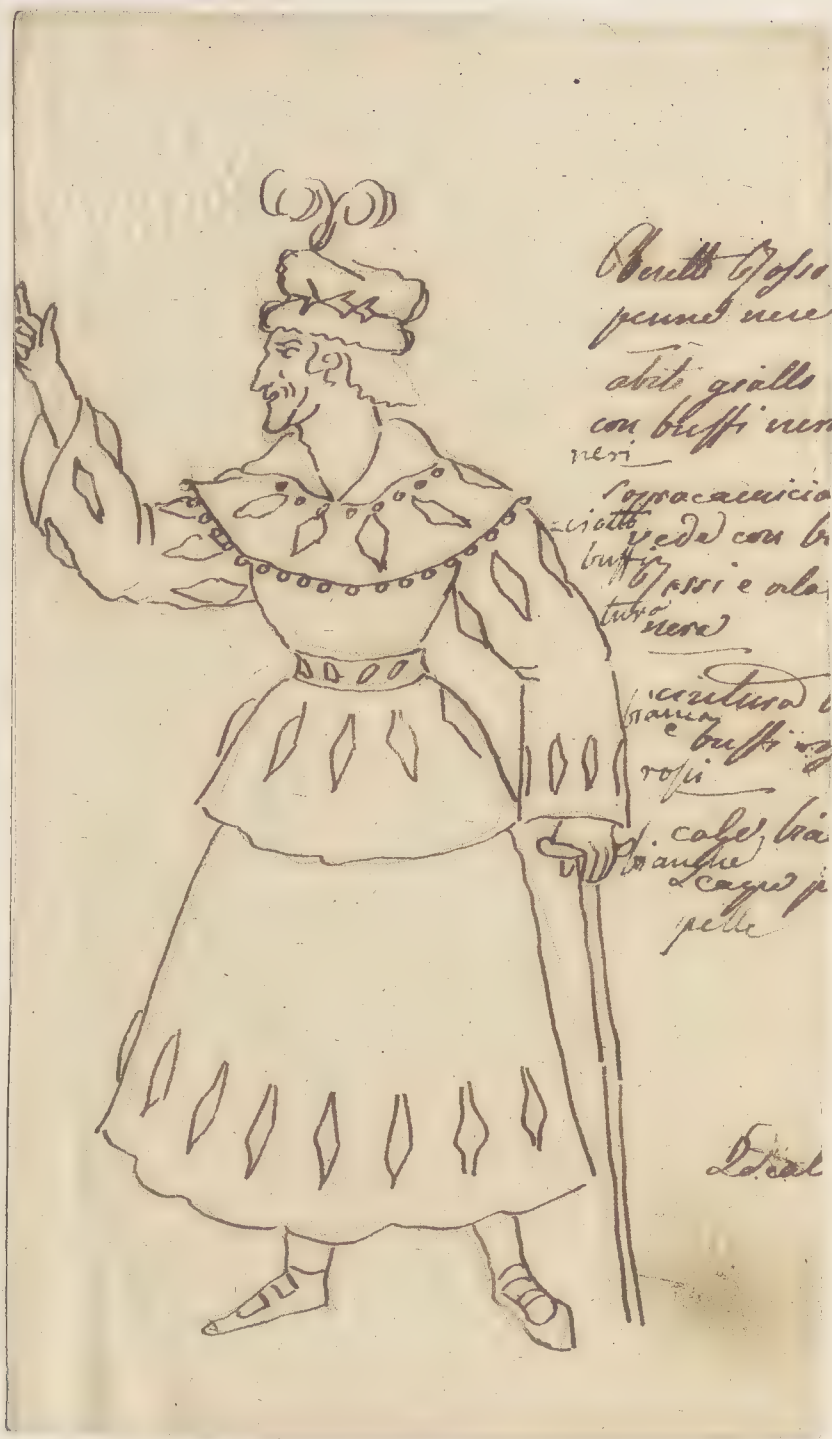 Beretto Rosso
penne nere
abito giallo
con buffi neri
neri
sopracamicia
-ciotto
vede con b
buffi
Rossi e orla
tura
nera
cintura b
bianca
e buffi
rossi
calze bia
bianche
scarpe p
pelle